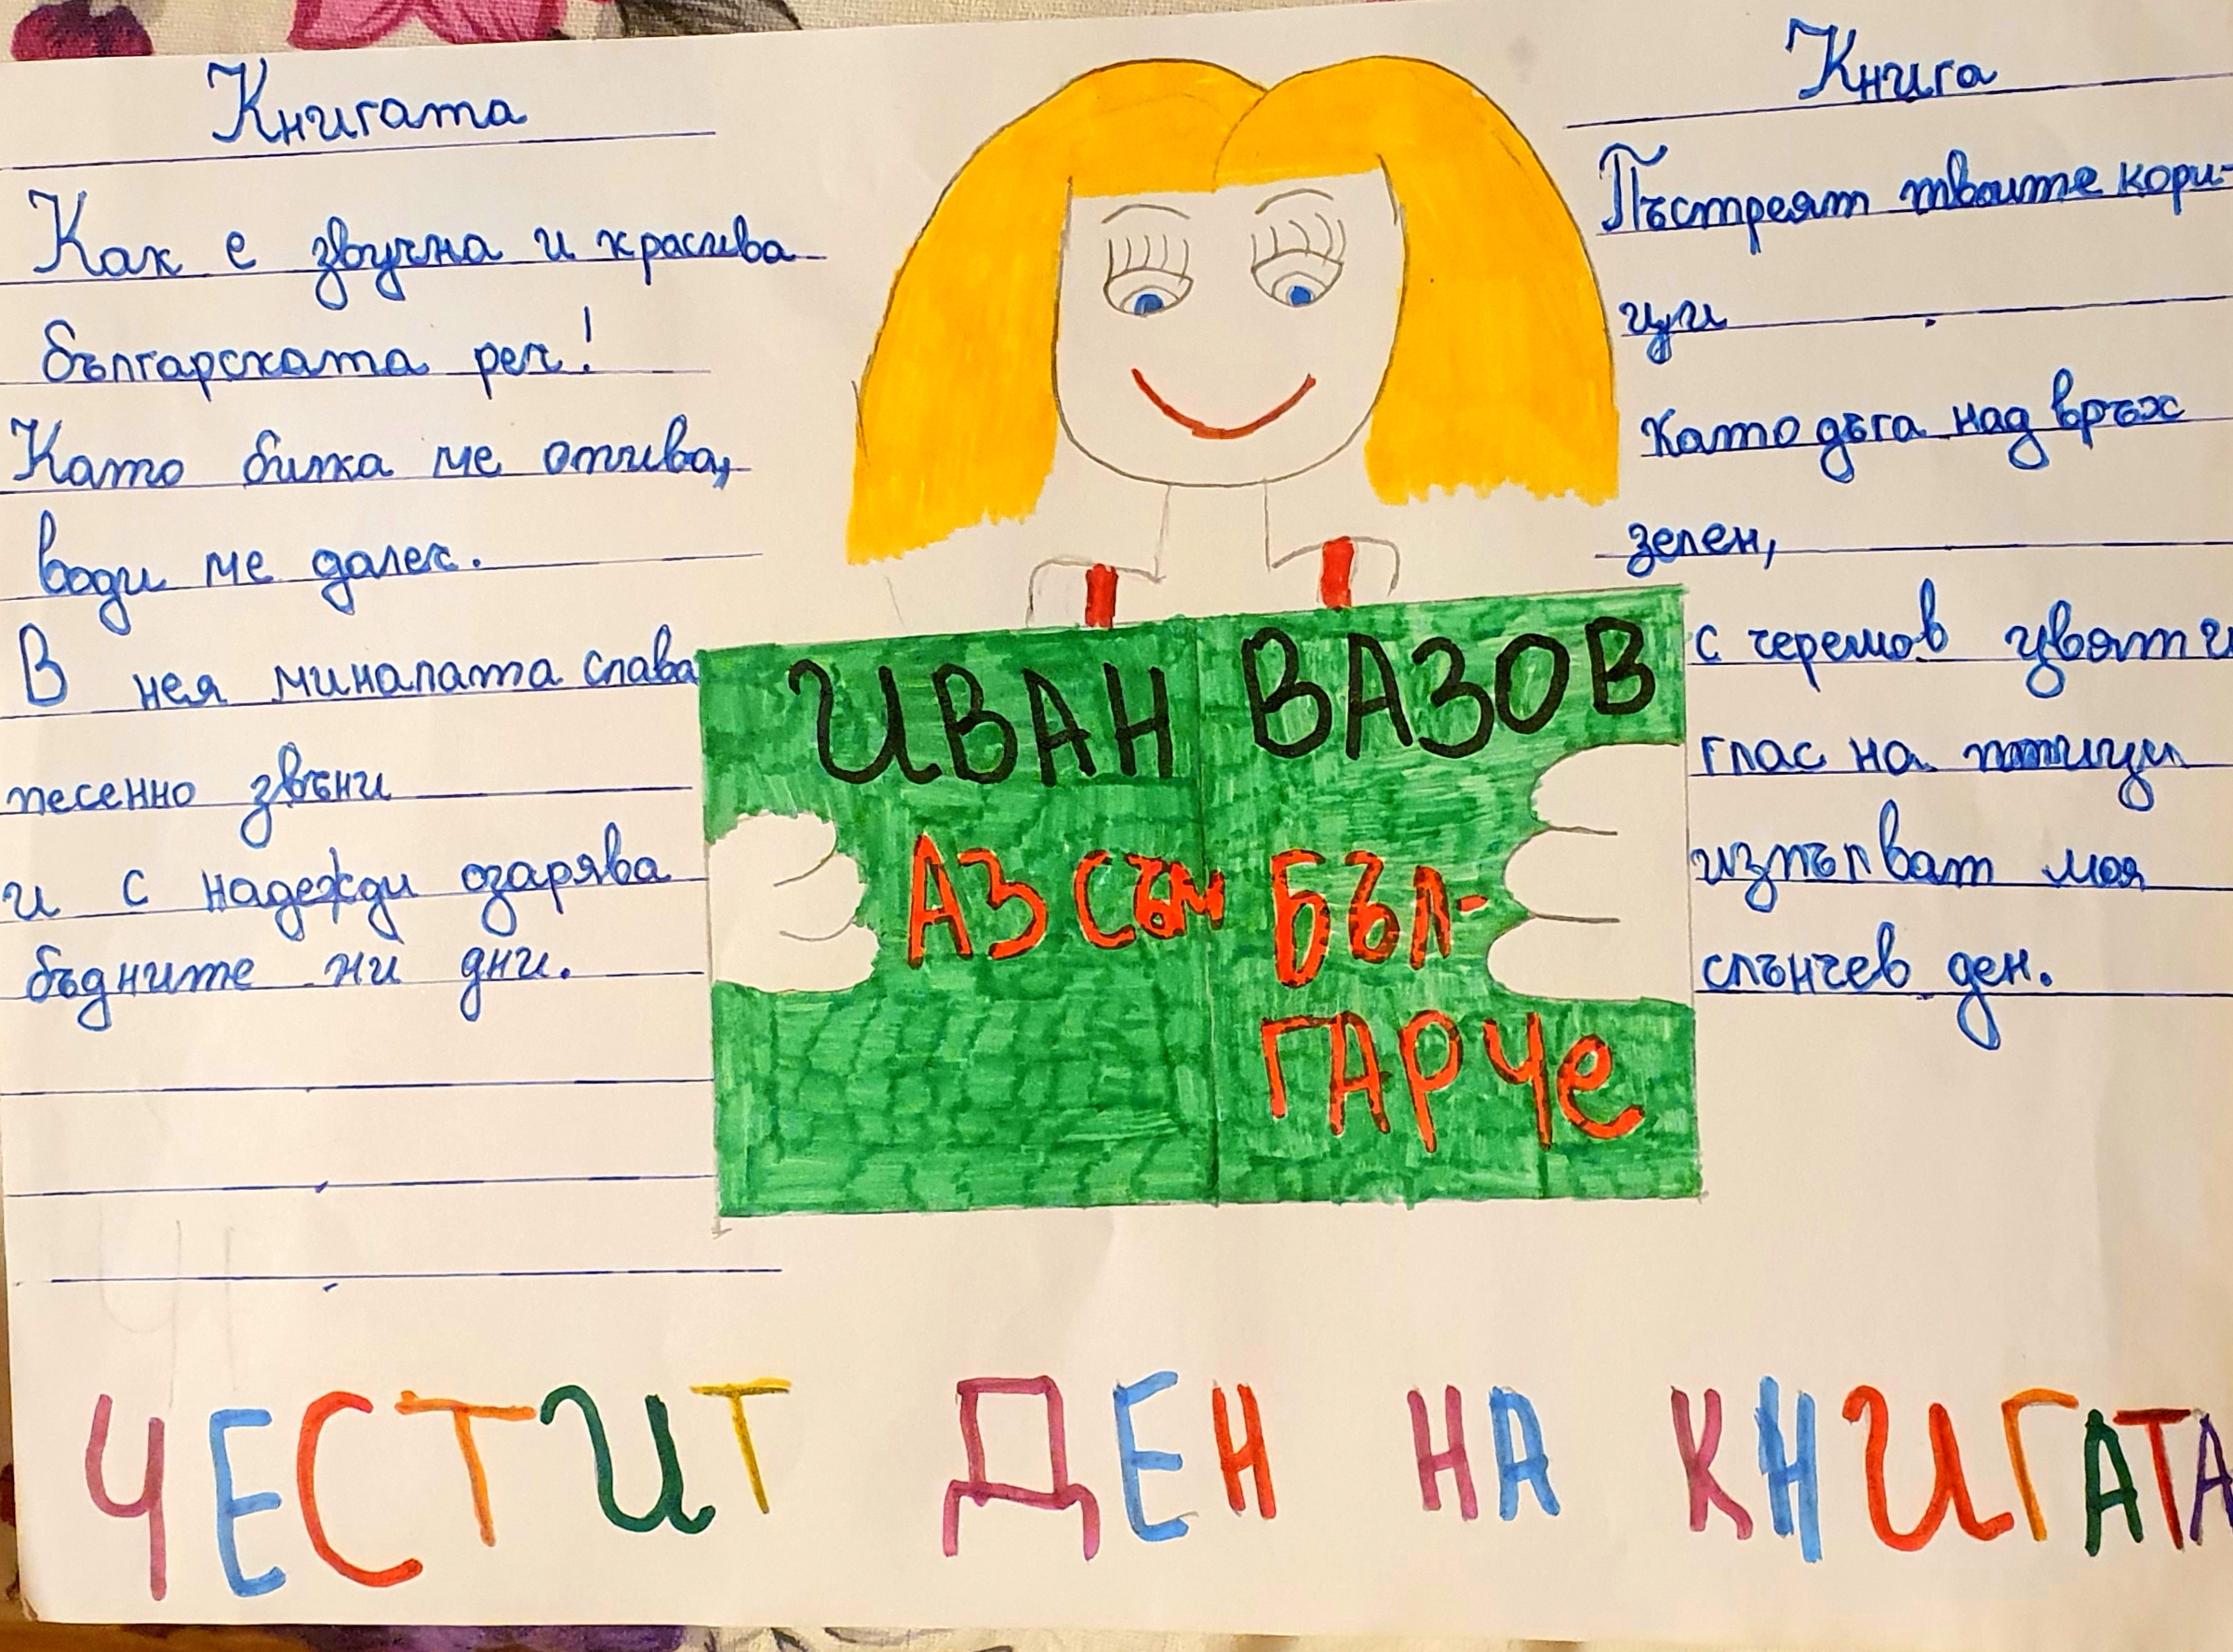 Книгата
Как е звучна и красива
българската реч!
Като битка ме опива,
води ме далек.
В нея миналата слава
песенно звъни
и с надежди озарява
бъдните ни дни.
ИВАН ВАЗОВ
АЗ СЪМ БЪЛ-
ГАРЧе
Книга
Пъстреят твоите кори-
ци
като дъга над връх
зелен,
с черешов цвят и
глас на птици
изпълват моя
слънчев ден.
ЧЕСТИТ ДЕН НА КНИГАТА